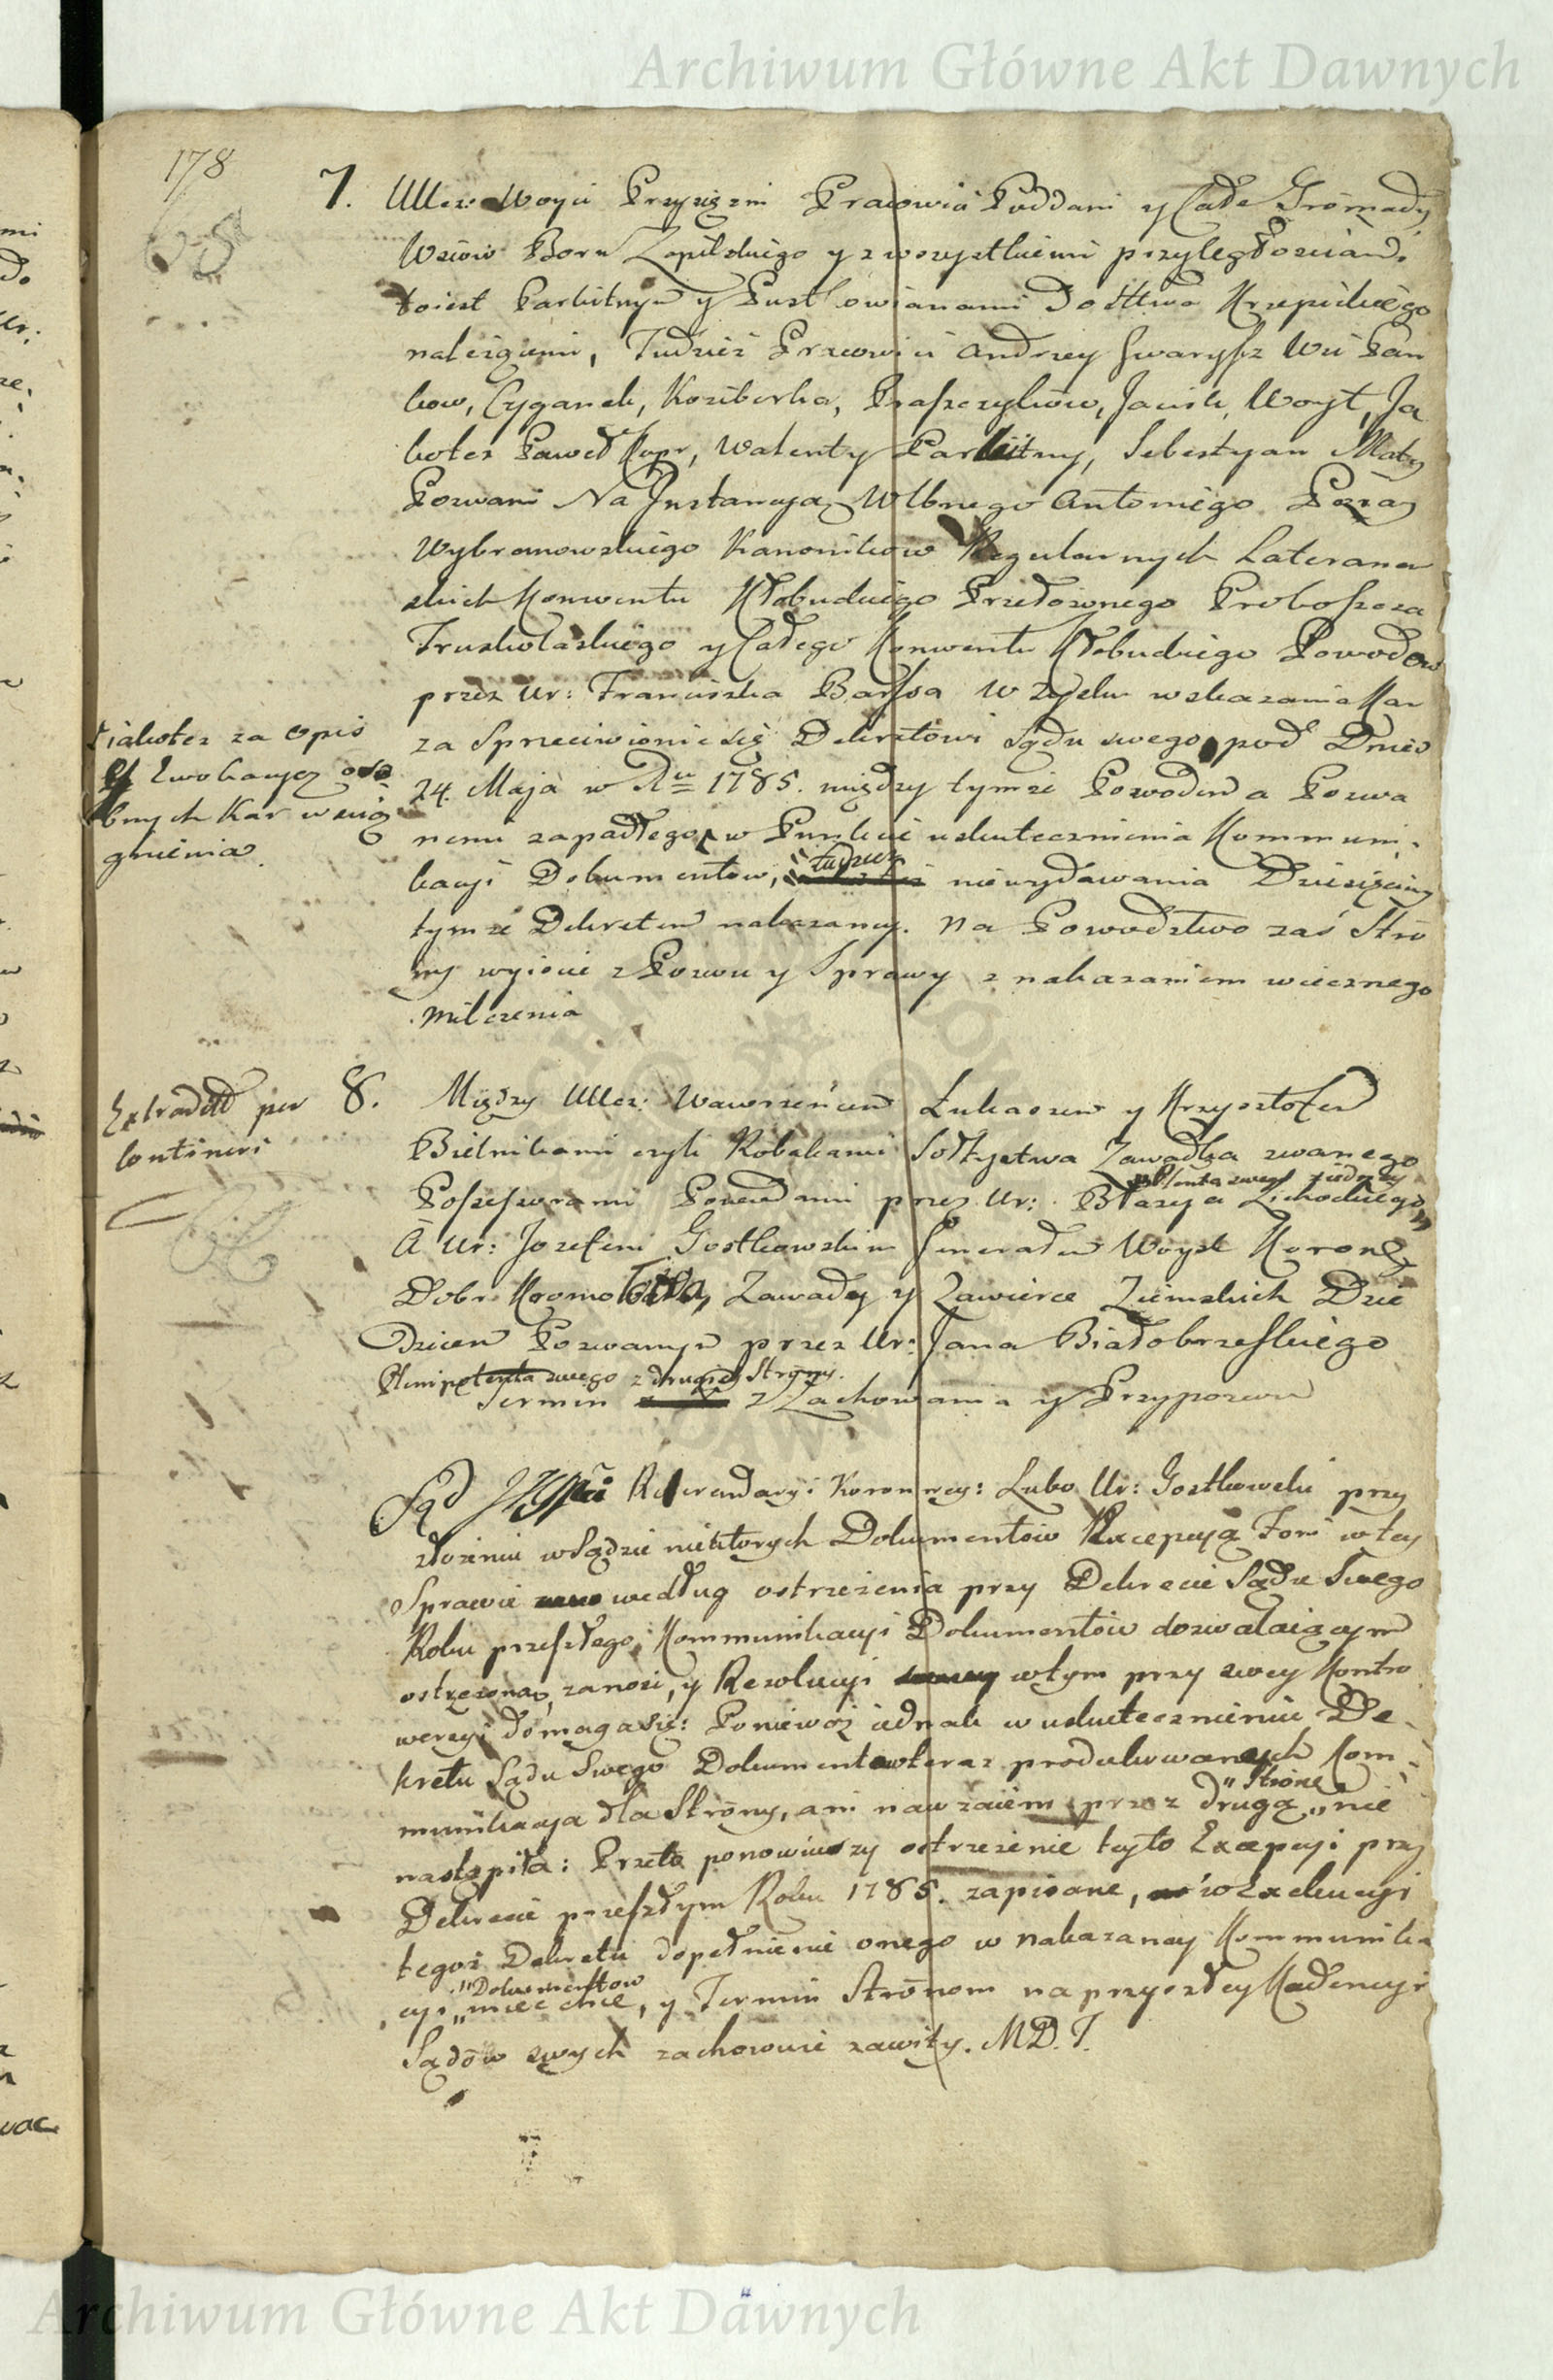 Archiwum Główne Akt Dawnych
178
7. Woyci Przysiężni Pracowici Poddani y Całe Gromady
Wsiów Boru Zapilskiego y z wszystkiemi przyległościami
toiest Parkitnym y Pustkowianami do Sttwa Krzepickiego
należącemi, Tudzież Pracowici Andrzey Wsi Pan
kow, Cyganek, Koziborka, Praszczyków, Jacek, Woyt, Ja
kotez Paweł Kopr, Walenty Parkitny, Sebestyan Mały
Pozwani Na Instancyą Wlbnego Antoniego
Wybranowskiego Kanoników Regularnych Laterane
skich Konwentu Kłobuckiego Przełożonego Proboszcza
Truskolaskiego y Całego Konwentu Kłobuckiego Powodów
przez Ur: Franciszka Barssa w Zysku wskazania Kar
za Sprzeciwienie się Dekretowi Sądu swego pod Dniem
24. Maja w Ru 1785. między tymże Powodem a Pozwa
nemi zapadłego, w Punkcie uskutecznienia Kommuni
kacyi Dokumentow, tudzież niewydawania Dziesięciny
tymże Dekretem nakazaney. Na Powodztwo zaś Stro
ny wyiscie z Pozwu y Sprawy z nakazaniem wiecznego
Milczenia
tiakotez za opis
y Ewokacyą oso
bnych Kar wciąg
gnienia
Extradtt per
Contineri
8. Między Wawrzeńcem Łukaszem y Krzysztofem
Bielnikami czyli Robakami Sołtystwa Zawadka zwanego
Possessorami Powodami przez Ur: Błażeja Cichockiego
Plenta swego z iedney
A Ur: Jozefem Gostkowskim Generałem Woysk Koronn
Dobr Kromołowa, Zawady y Zawierce Ziemskich Dzie
dzicem Pozwanym przez Ur: Jana Białobrzeskiego
Plenipotenta swego z drugiey Strony.
Termin z Zachowania y Przypozwu
Sąd Referendaryi Koronney: Lubo Ur: Gostkowski przy
złożeniu w Sądzie niektorych Dokumentów Excepcyą Fori w tey
Sprawie według ostrzeżenia przy Dekrecie Sądu Swego
Roku przeszłego Kommunikacyi Dokumentów dozwalaiącym
ostrzeżoną, zanosi, y Rezolucyi w tym przy swey Kontro
wersyi domaga się: Ponieważ iednak w uskutecznieniu De
kretu Sądu Swego Dokumentow teraz produkowanych Kom
munikacya dla Strony, ani nawzaiem przez drugą "Stronę" nie
nastąpiła: Przeto ponowiwszy ostrzeżenie teyto Excepcyi przy
Dekrecie przeszłym Roku 1785. zapisane, w Exekucyi
tegoż Dekretu dopełnienie onego w nakazaney Kommunika
cyi "Dokumentow" mieć chce, y Termin Stronom na przyszłey Kadencyi
Sądów swych zachowuie zawity. M.D.T.
Archiwum Główne Akt Dawnych